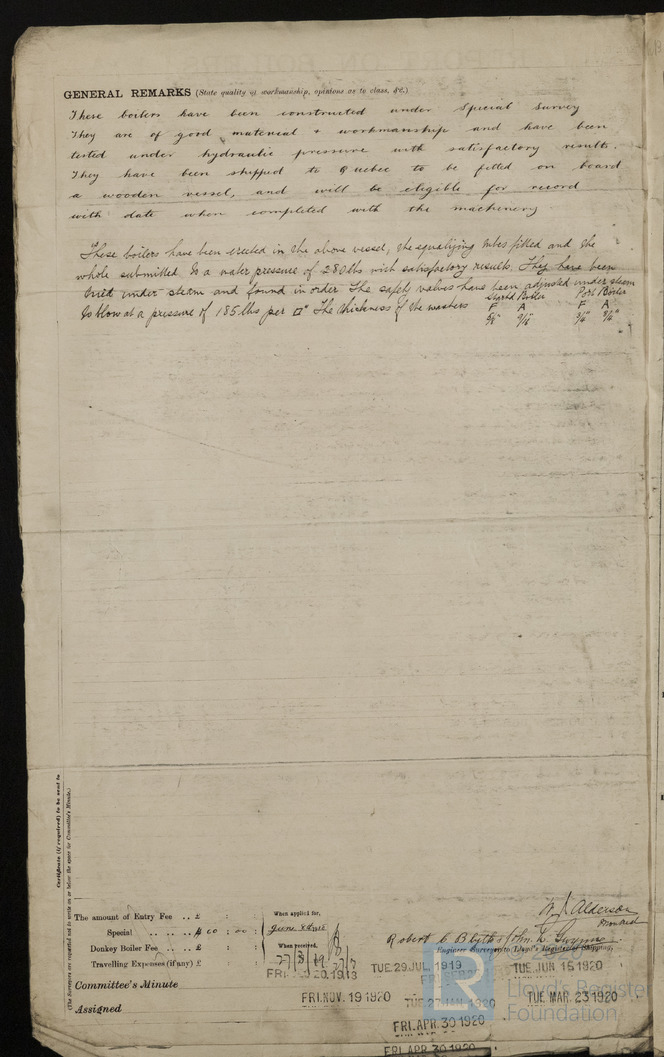 GENERAL REMARKS (State quality of workmanship, opinions as to class, &c.)
These boilers have been constructed under Special Survey
They are of good material & workmanship and have been
tested under hydraulic pressure with satisfactory results.
They have been shipped to Quebec to be fitted on board
a wooden vessel, and will be eligible for record
with date when completed with the machinery
These boilers have been erected in the above vessel, the equalizing tubes fitted and the
whole submitted to a water pressure of 280 lbs with satisfactory results. They have been
tried under steam and found in order The safety valves have been adjusted under steam
to blow at a pressure of 185 lbs per □" The thickness of the washers
Starbd Boiler Port Boiler
F A F A
5/8" 9/16" 3/4" 3/4"
Certificate (if required) to be sent to
(The Surveyors are requested not to write on or below the space for Committee's Minute.)
The amount of Entry Fee .. £ : :
Special .. .. .. 
Donkey Boiler Fee .. £ : :
Travelling Expenses (if any) £ : :
When applied for,
When received,
W. J. Alderson
Montreal
Robert C Blyth & John L. Gwynne
Engineer Surveyor to Lloyd's Register of Shipping.
Committee's Minute
Assigned
TUE 29 JUL. 1919
TUE. JUN. 15 1920
FRI. NOV. 19 1920
TUE 27 JAN. 1920
TUE MAR. 23 1920
FRI. APR. 30 1920
FRI. APR. 30 1920
Lloyd's Register
Foundation